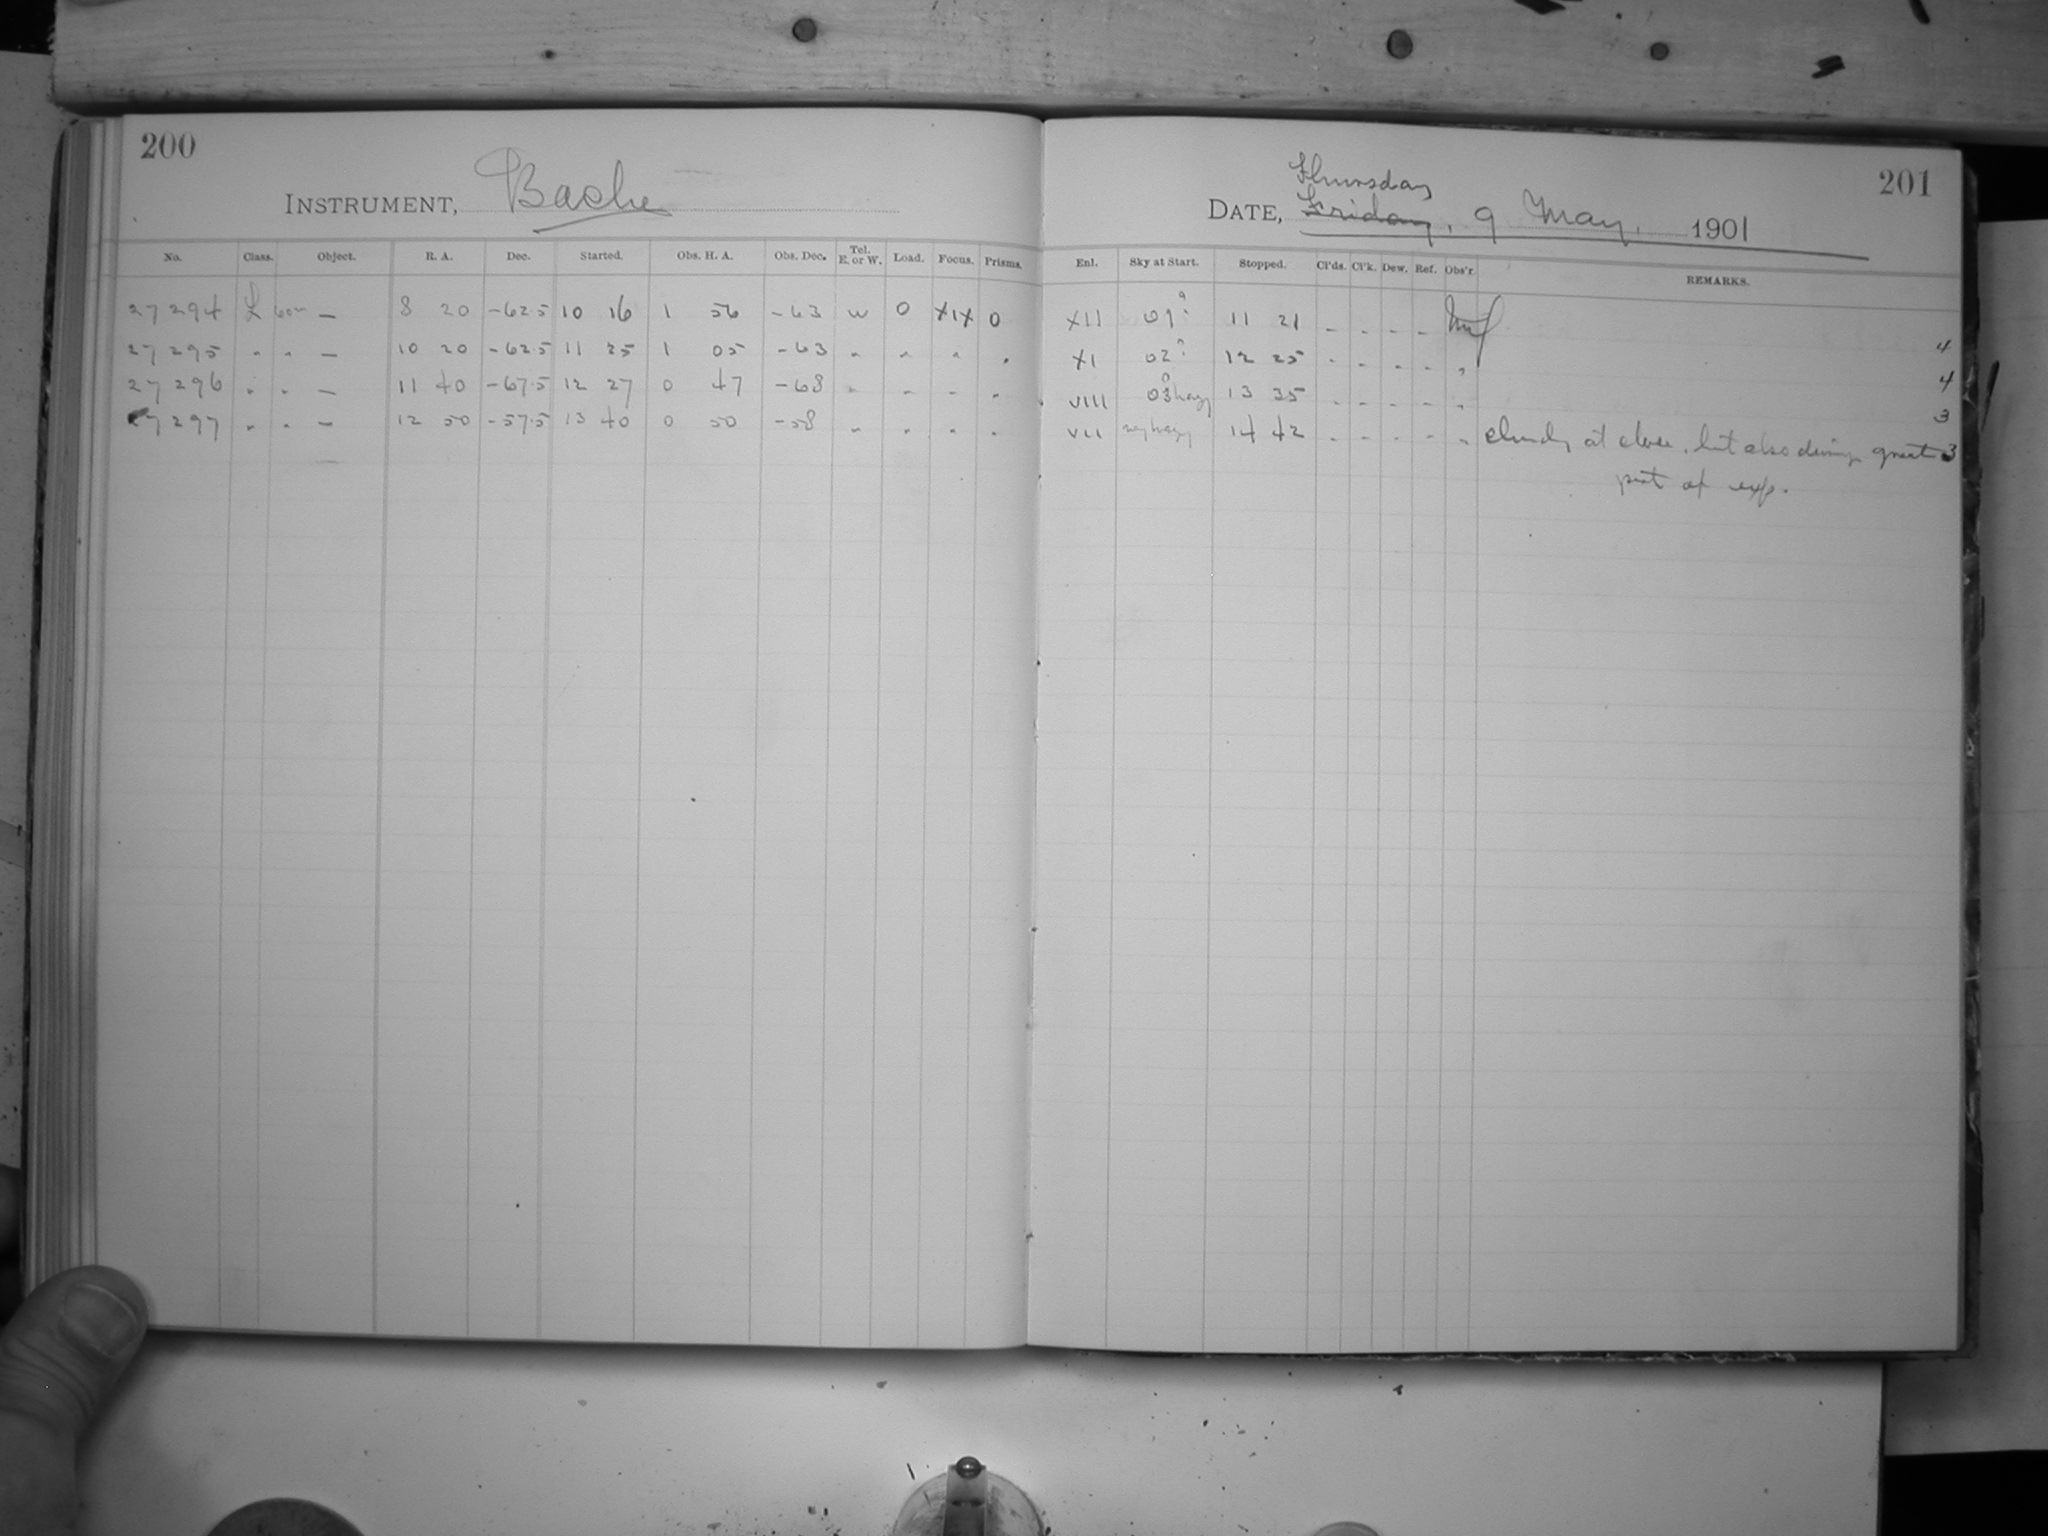 200
INSTRUMENT, Bache
Thursday
201
DATE, Friday, 9 May, 1901
No. Class. Object. R. A. Dec. Started. Obs. H. A. Obs. Dec. Tel. E. or W. Load. Focus. Prisms. Enl. Sky at Start. Stopped. Cl'ds. Cl'k. Dew. Ref. Obs'r. REMARKS.
27294 L 60m — 8 20 -62.5 10 16 1 56 -63 W 0 XIX 0 XII 01? 11 21 - - - - 4
27295 " " — 10 20 -62.5 11 25 1 05 -63 " " " " XI 02? 12 25 - - - - " 4
27296 " " — 11 40 -67.5 12 27 0 47 -68 " " " " VIII 03? hazy 13 35 - - - - " 3
27297 " " — 12 50 -57.5 13 40 0 50 -58 " " " " VII hazy 14 42 - - - - " cloudy at close, but also during great 3
part of exp.